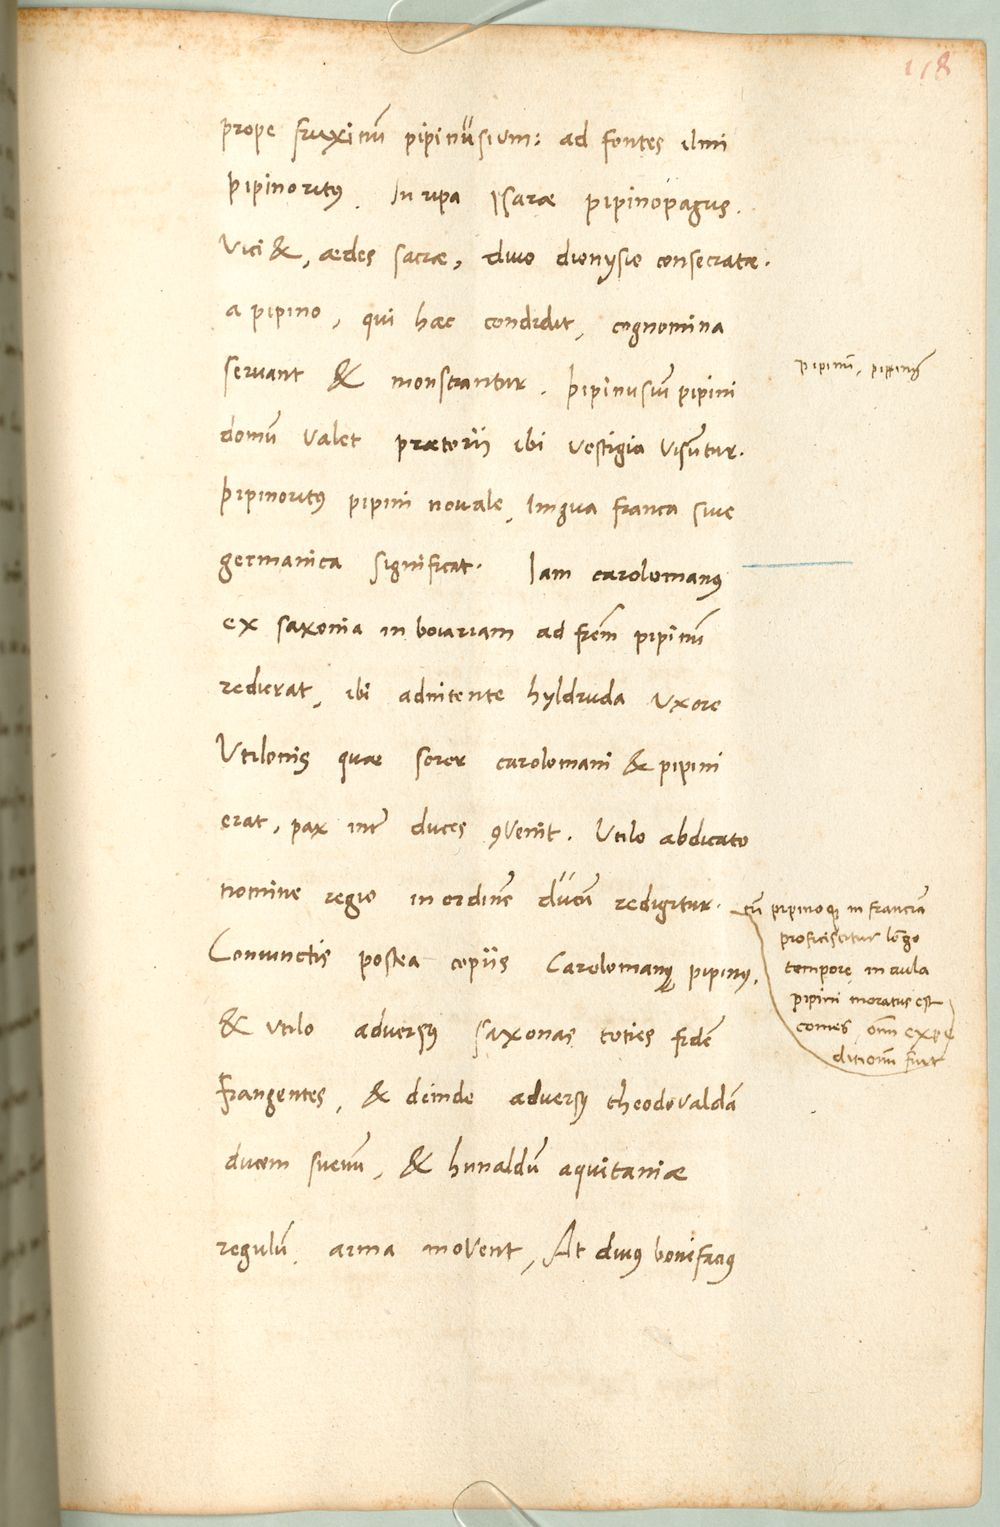 118
prope fruxinū pipinusium: ad fontes ilmi
pipinoritꝰ. In ripa ysaræ pipinopagus.
Vici &, ædes sacræ, diuo dionysio consecratæ.
a pipino, qui hæc condidit, cognomina
seruant & monstrantur. pipinusiū pipini
domū valet prætorii ibi vestigia visūtur.
pipinoritꝰ pipini nouale, lingua franca siue
germanica significat. Iam carolomanꝰ
ex saxonia in boiariam ad frēm pipinū
redierat, ibi adnitente hyldruda uxore
Vtilonis quæ soror carolomani & pipini
erat, pax int̄ duces ꝯuenit. Vtilo abdicato
nomine regio in ordinē ducū redigitur.
Coniunctis postea copiis Carolomanꝰ pipinꝰ,
& vtilo aduersꝰ saxonas toties fidē
frangentes, & deinde aduersꝰ theodovaldū
ducem sueuū, & hunaldū aquitaniæ
regulū arma movent, At diuꝰ bonifaciꝰ
pipinū, pipinꝰ
cū pipinoq; in franciā
proficiscitur lōgo
tempore in aula
pipini moratus est
comes oīm expe
ditionū fuit